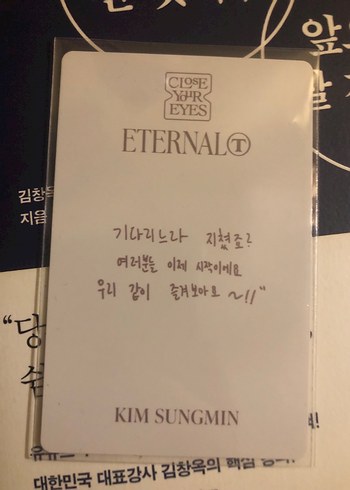 앞
CLOSE
YOUR
EYES
ETERNAL Ⓣ
김창옥
지음
기다리느라 지쳤죠?
여러분들 이제 시작이에요
우리 같이 즐겨보아요 ~!!"
"당
KIM SUNGMIN
대한민국 대표강사 김창옥의 핵심